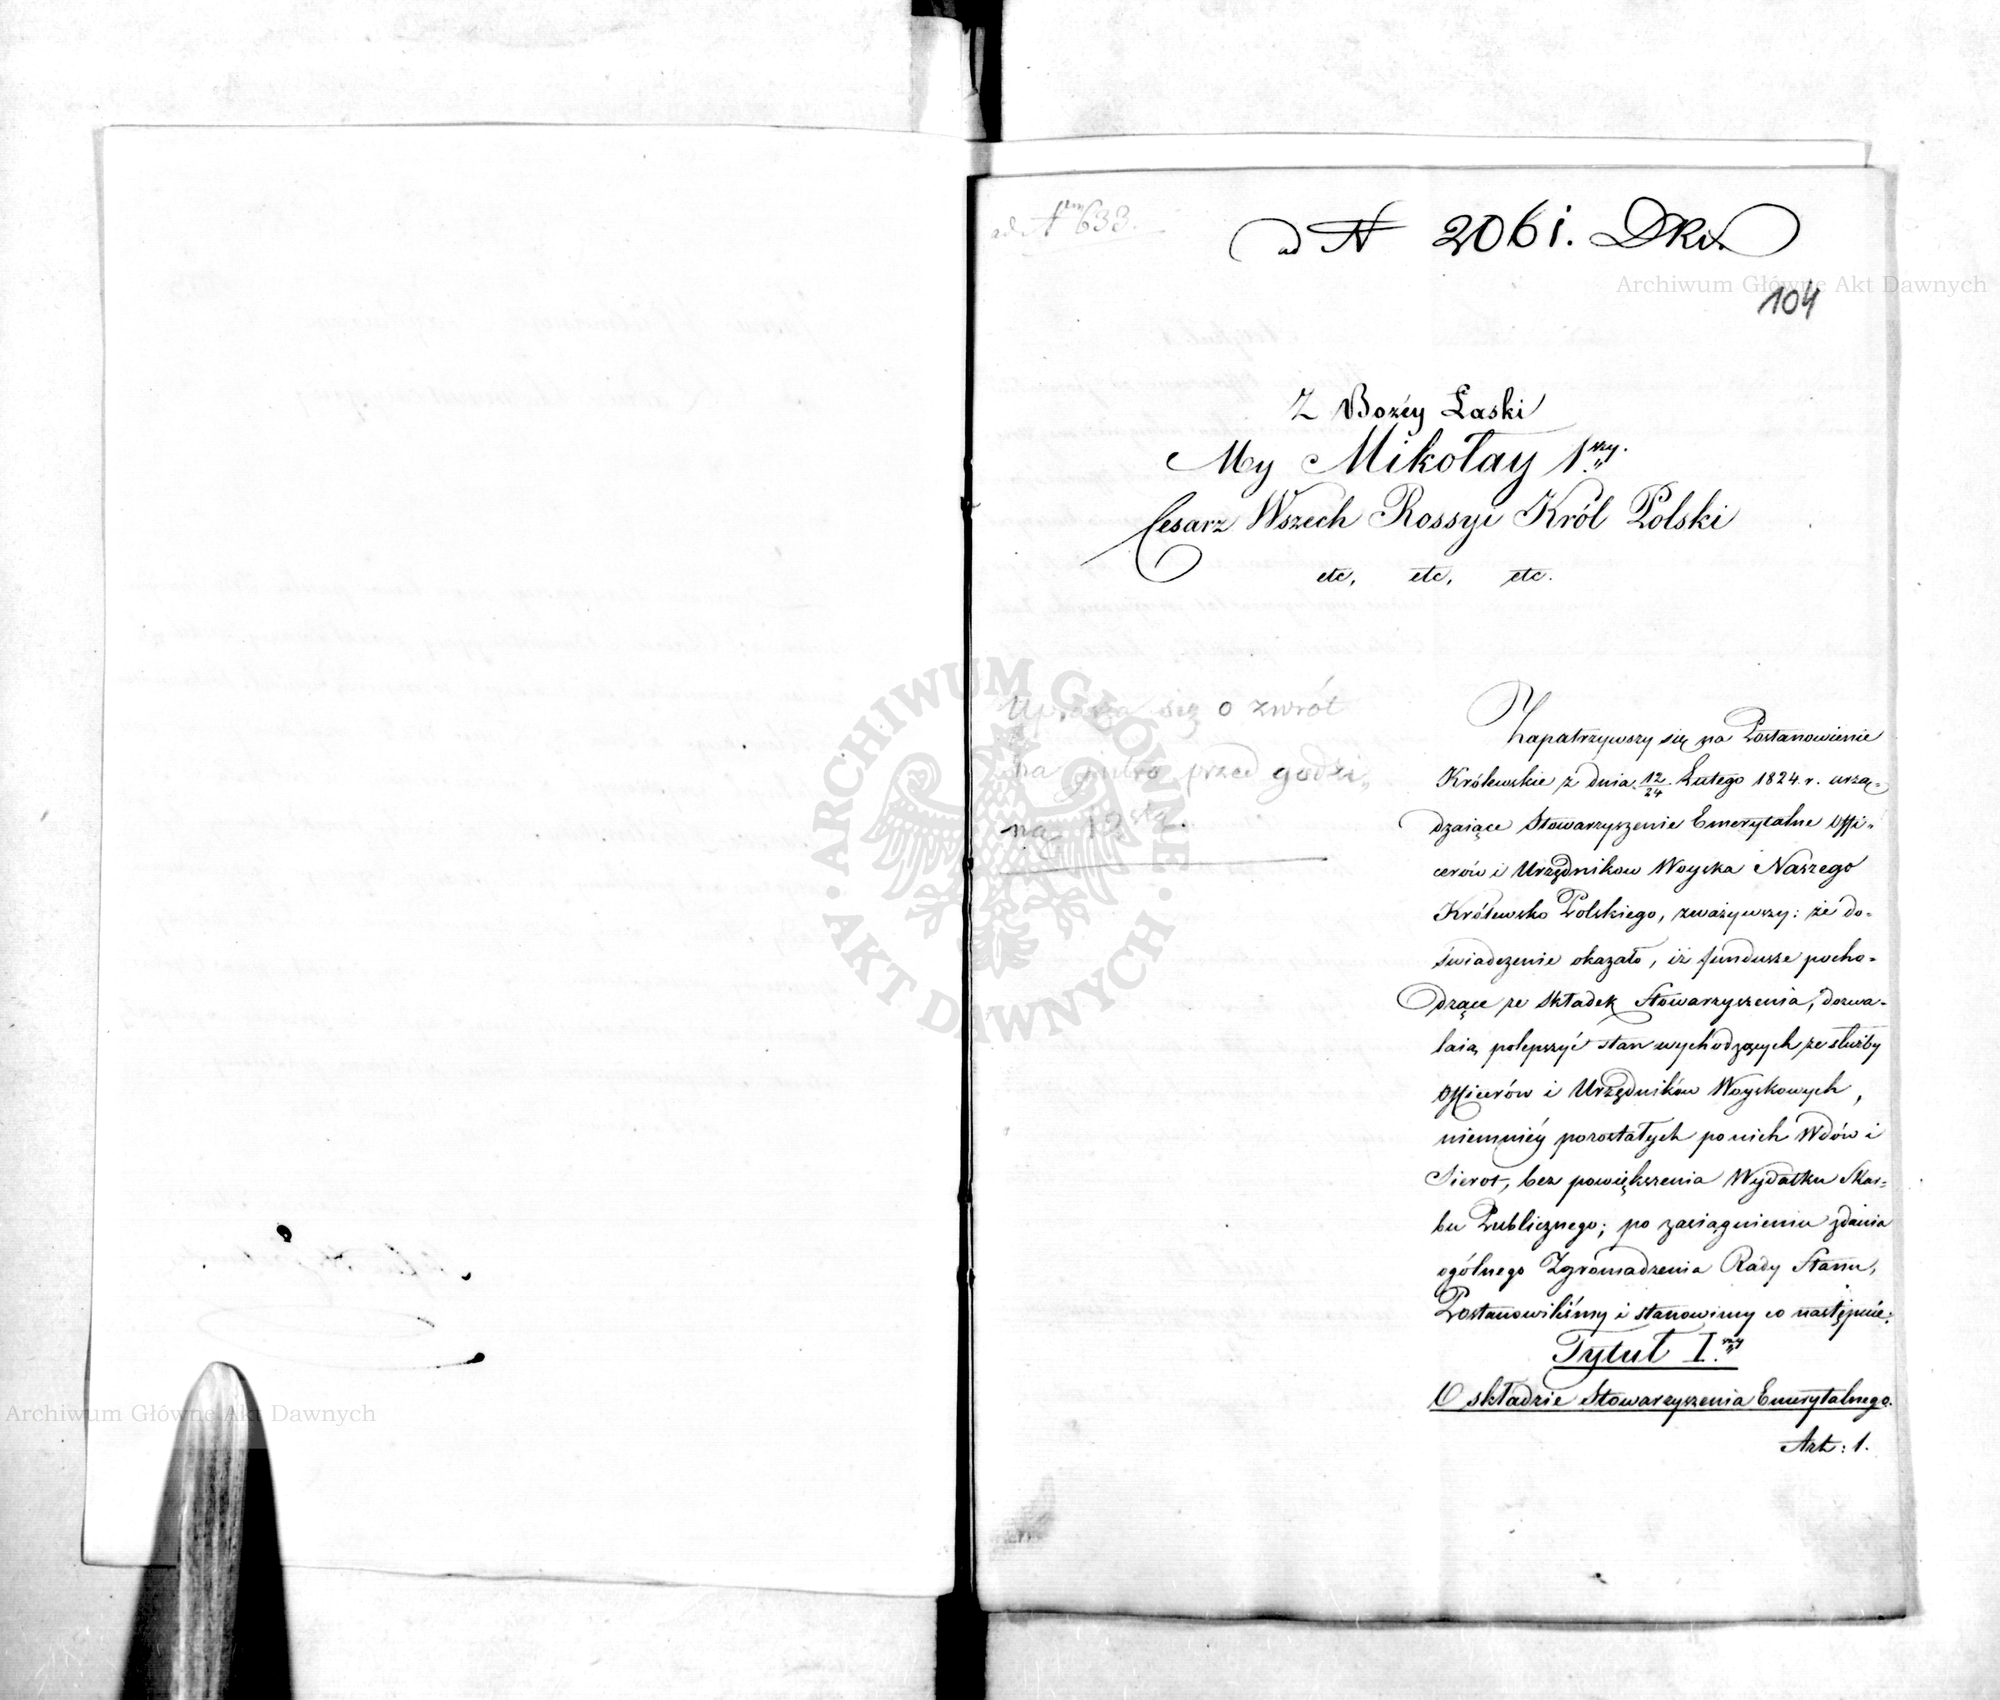 ad Nrm 633.
ad N 2061. DRW
104
Z Bożéy Łaski
My Mikołay 1.szy.
Cesarz Wszech Rossyi Król Polski
etc, etc, etc.
Uprasza się o zwrót
na jutro przed godzi„
ną 12stą.
Zapatrzywszy się na Postanowienie
Królewskie z dnia 12/24 Lutego 1824. r. urzą=
dzaiące Stowarzyszenie Emerytalne Offi=
cerów i Urzędnikow Woyska Naszego
Królewsko Polskiego, zważywszy: że do=
świadczenie okazało, iż fundusze pocho=
dzące ze składek Stowarzyszenia, dozwa=
laią polepszyć stan wychodzących ze służby
Officerów i Urzędników Woyskowych,
niemniéy pozostałych po nich Wdów i
Sierot, bez powiększenia Wydatku Skar=
bu Publicznego; po zasiągnieniu zdania
ogólnego Zgromadzenia Rady Stanu,
Postanowiliśmy i stanowimy co następuie:
Tytuł I.szy
O składzie Stowarzyszenia Emerytalnego.
Art: 1.
Archiwum Główne Akt Dawnych
Archiwum Główne Akt Dawnych
ARCHIWUM GŁÓWNE · AKT DAWNYCH ·